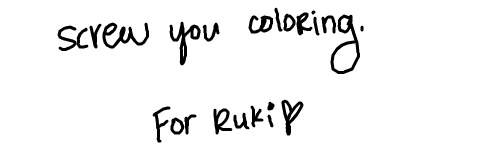 screw you coloring.
For Ruki♡